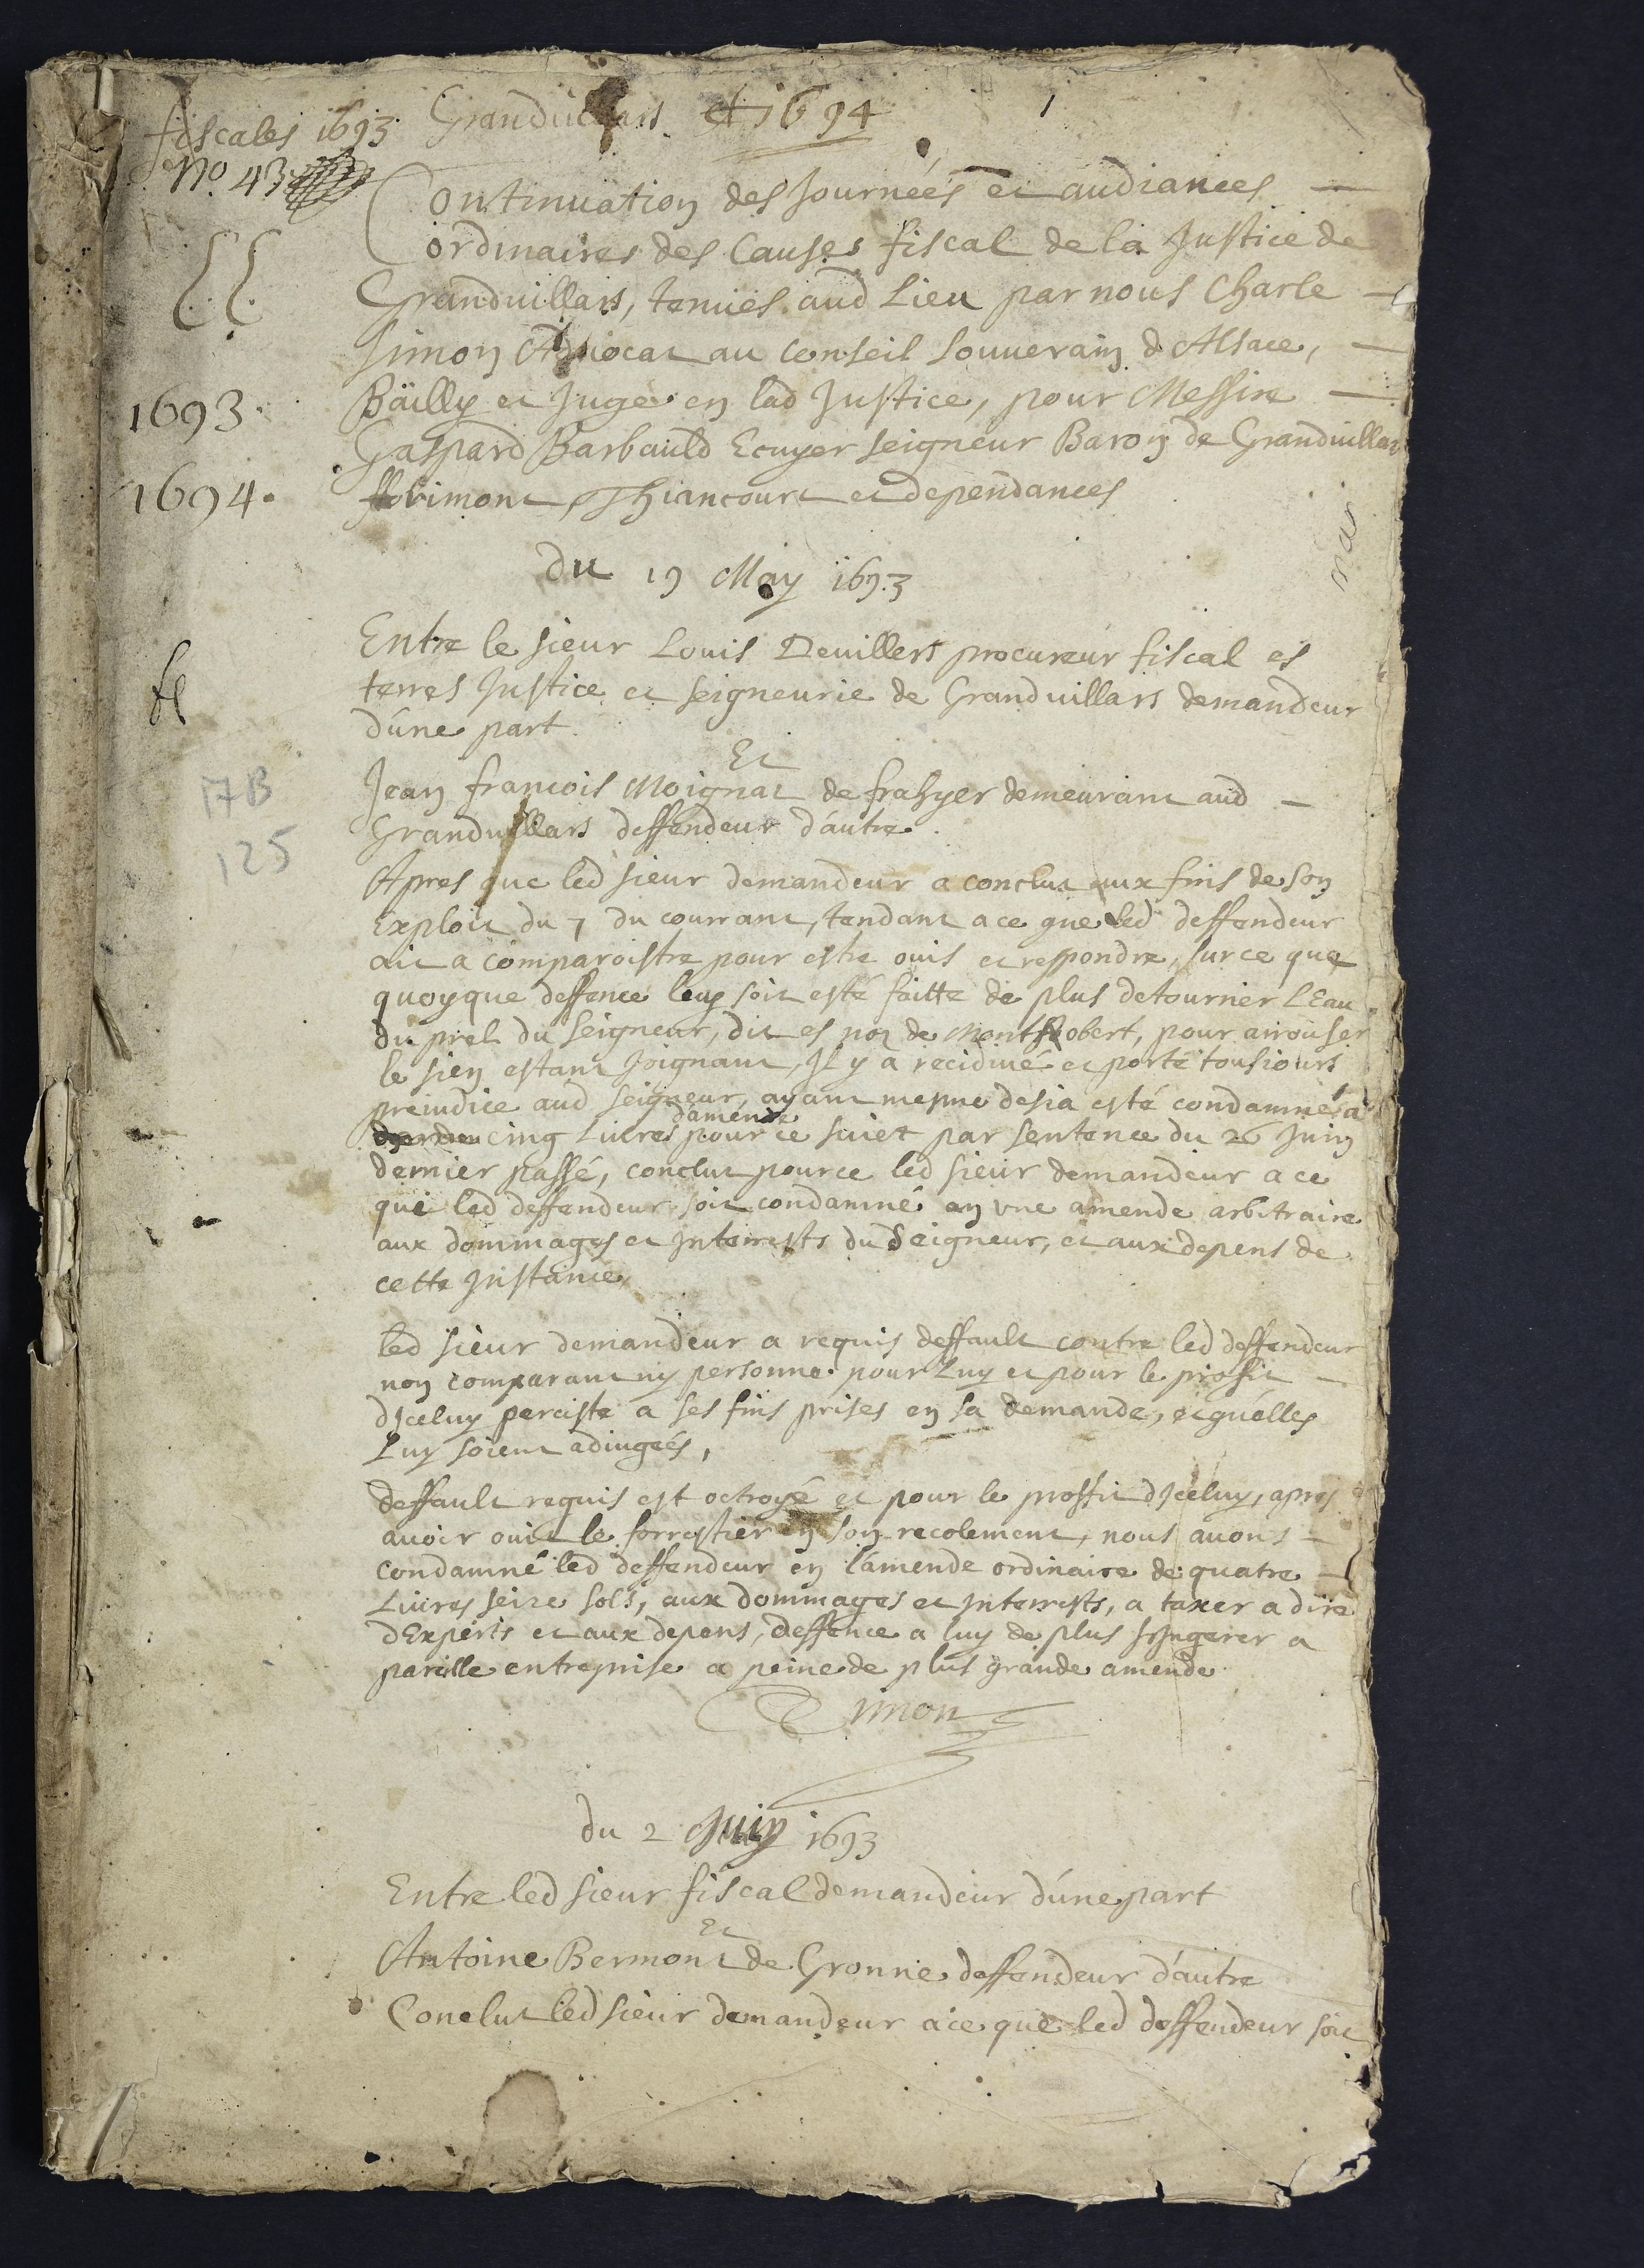 fiscales 1693 Granduillars et 1694
No. 43
1
Continuation des Journées et audiances
ordinaires des Causes fiscal de la Justice de
Granduillars, tenues aud Lieu par nous Charle
Simon Aduocat au Conseil Souuerain d'Alsace,
1693.
Bäilly et Juge en lad Justice, pour Messire
Gaspard Barbauld Ecuyer Seigneur Baron de Granduillars
1694.
florimont, Thiancourt et dependances
du 19 May 1693
Entre le sieur Louis Deuillers procureur fiscal es
terres Justice et Seigneurie de Granduillars demandeur
d'une part.
Et
17B
125
Jean francois Moignat de frahyer demeurant aud
Granduillars deffendeur d'autre.
Apres que led sieur demandeur a conclut aux fins de son
Exploit du 7 du courrant, tendant a ce que led deffendeur
ait a comparoistre pour estre ouis et respondre, sur ce que
quoyque deffence luy soit esté faitte de plus detourner L'Eau
du prel du Seigneur, dit es noz de Montrobert, pour arrouser
le sien estant Joignant, Il y a recidiué et porté tousiours
preiudice aud Seigneur, ayant mesme desia esté condamné a
d'amende
cinq Liures pour ce suiet par sentence du 26 Juin
dernier passé, conclut pource led sieur demandeur a ce
que led deffendeur soit condamné en vne amende arbitraire
aux dommages et Interrests du Seigneur, et aux depens de
cette Instance,
led sieur demandeur a requis deffault contre led deffendeur
non comparant ny personne pour Luy et pour le proffit
d'Iceluy perciste a ses fins prises en sa demande, et qu'elles
Luy soient adiugées,
deffault requis est octroyé et pour le proffit d'Iceluy, apres
auoir ouit le forrestier en son recolement, nous auons
condamné led deffendeur en l'amende ordinaire de quatre
Liures seize sols, aux dommages et Interrests, a taxer a dire
d'Experts et aux depens, deffence a luy de plus s'Ingerer a
pareille entreprise a peine de plus grande amende
Simon
du 2 Juin 1693
Entre led sieur fiscal demandeur d'une part
Et
Antoine Bermont de Gronne deffendeur d'autre
Conclut led sieur demandeur a ce que led deffendeur soit